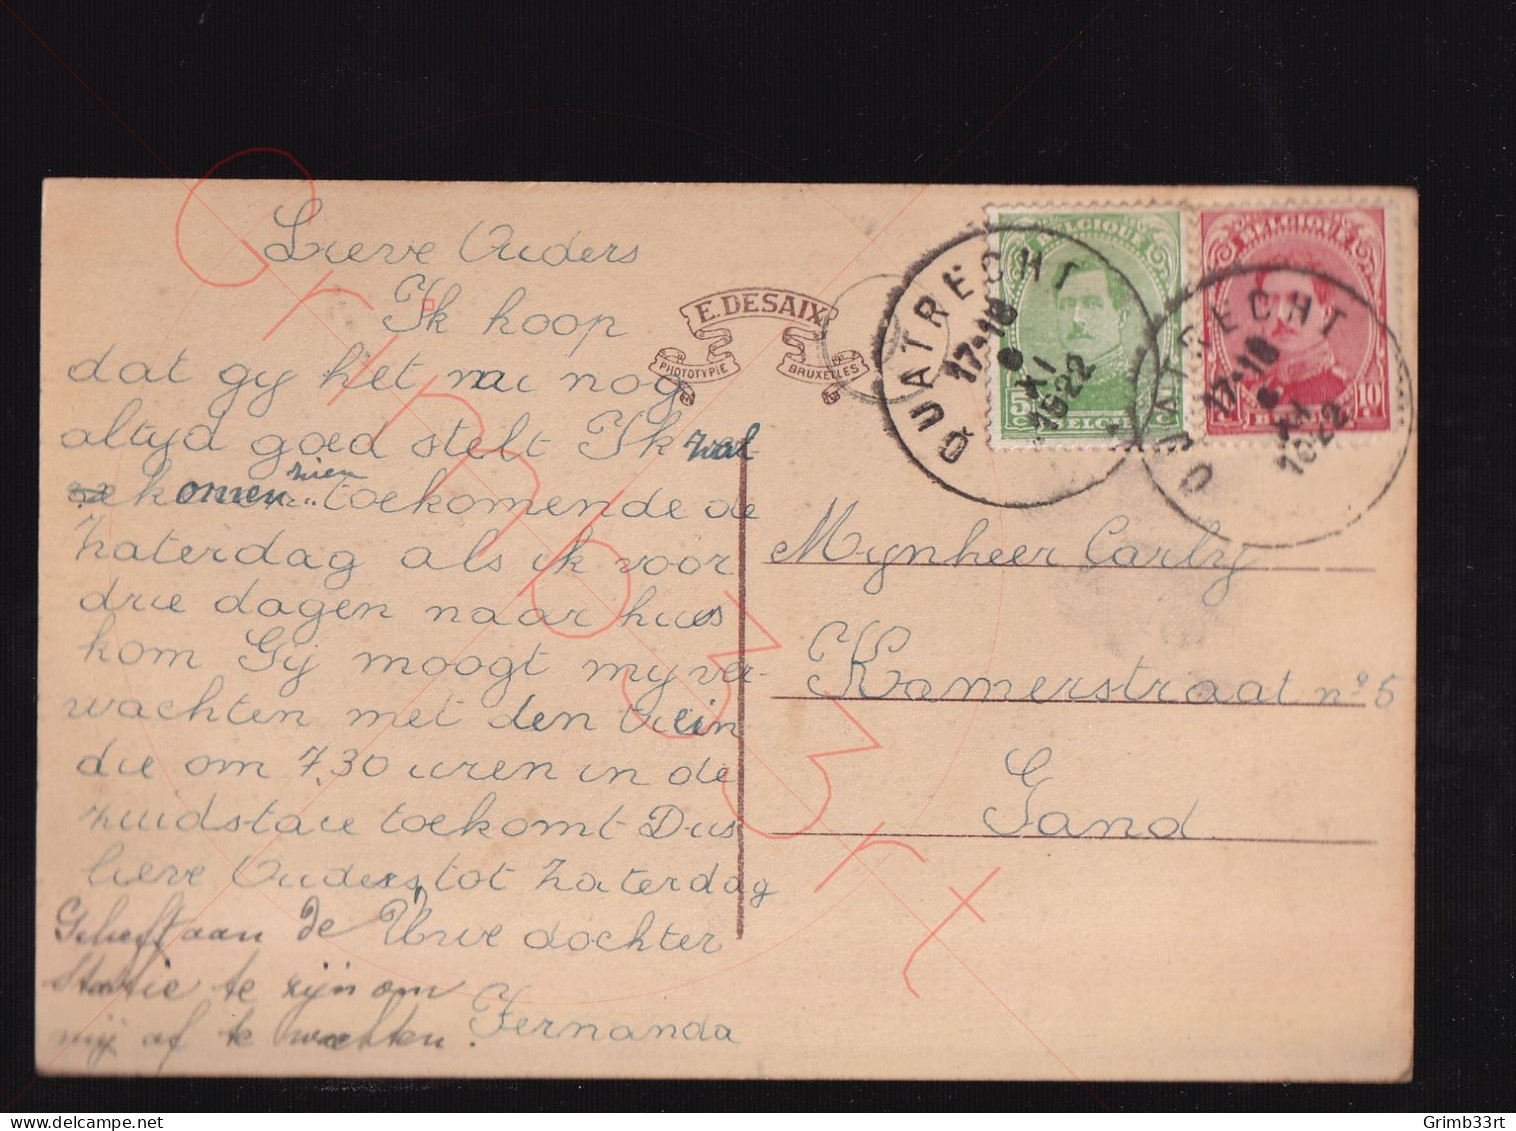 Lieve Ouders
Ik hoop
dat gy het nog
altyd goed stelt Ik zal
komen zien toekomende de
Zaterdag als ik voor
drie dagen naar huis
kom Gij moogt my ver-
wachten met den trein
die om 7.30 uren in de
zuidstatie toekomt Dus
lieve Ouders, tot Zaterdag
Uwe dochter
Fernanda
Gelieft aan de
Statie te zijn om
mij af te wachten.
E. DESAIX
PHOTOTYPIE
BRUXELLES
BELGIQUE
5
BELGIE
BELGIQUE
10
BELGIE
QUATRECHT
17-18
XI
1922
QUATRECHT
17-18
XI
1922
Mynheer Carly
Kamerstraat nº 5
Gand
Grimb33rt
© Grimb33rt